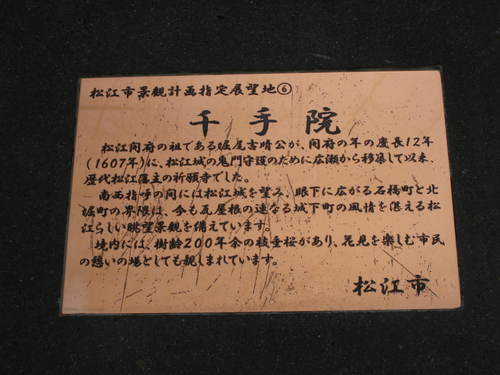 松江市景観計画指定展望地⑥
千手院
松江開府の祖である堀尾吉晴公が、開府の年の慶長12年
(1607年)に、松江城の鬼門守護のために広瀬から移築して以来、
歴代松江藩主の祈願寺でした。
南西指呼の間には松江城を望み、眼下に広がる石橋町と北
堀町の界隈は、今も瓦屋根の連なる城下町の風情を湛える松
江らしい眺望景観を備えています。
境内には、樹齢200年余の枝垂桜があり、花見を楽しむ市民
の憩いの場としても親しまれています。
松江市